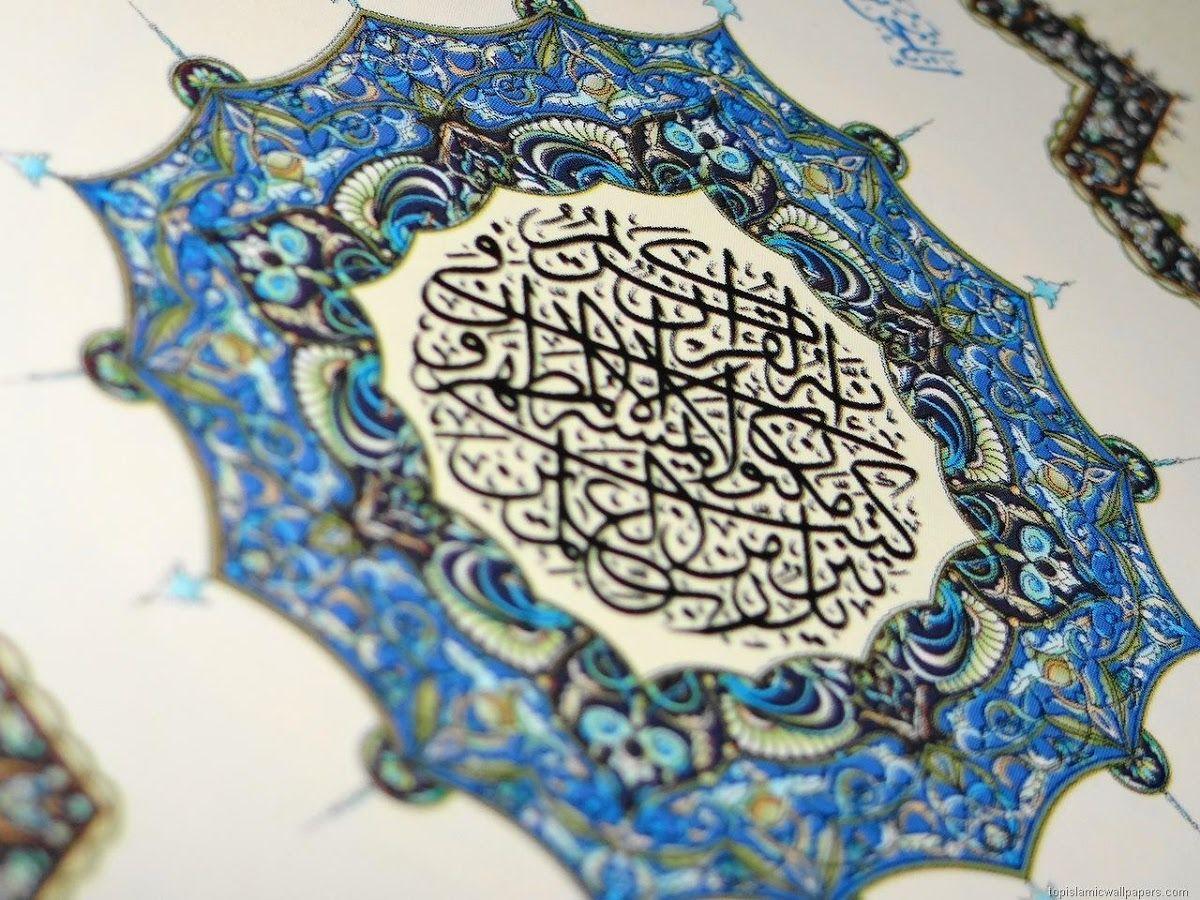 إِنَّهُ لَقُرْآنٌ كَرِيمٌ
فِي كِتَابٍ مَكْنُونٍ
لَا يَمَسُّهُ إِلَّا الْمُطَهَّرُونَ
تَنْزِيلٌ مِنْ رَبِّ الْعَالَمِينَ
topislamicwallpapers.com